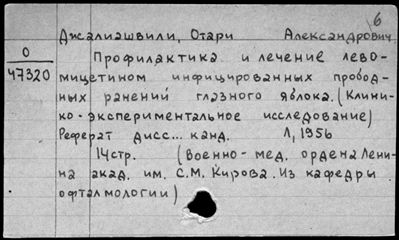 6
Джалиашвили, Отари Александрович
О
47320
Профилактика и лечение лево-
мицетином инфицированных пробод-
ных ранений глазного яблока. (Клини-
ко-экспериментальное исследование)
Реферат дисс... канд. Л, 1956
14стр. (Военно-мед. ордена Лени-
на акад. им. С.М. Кирова. Из кафедры
офталмологии)